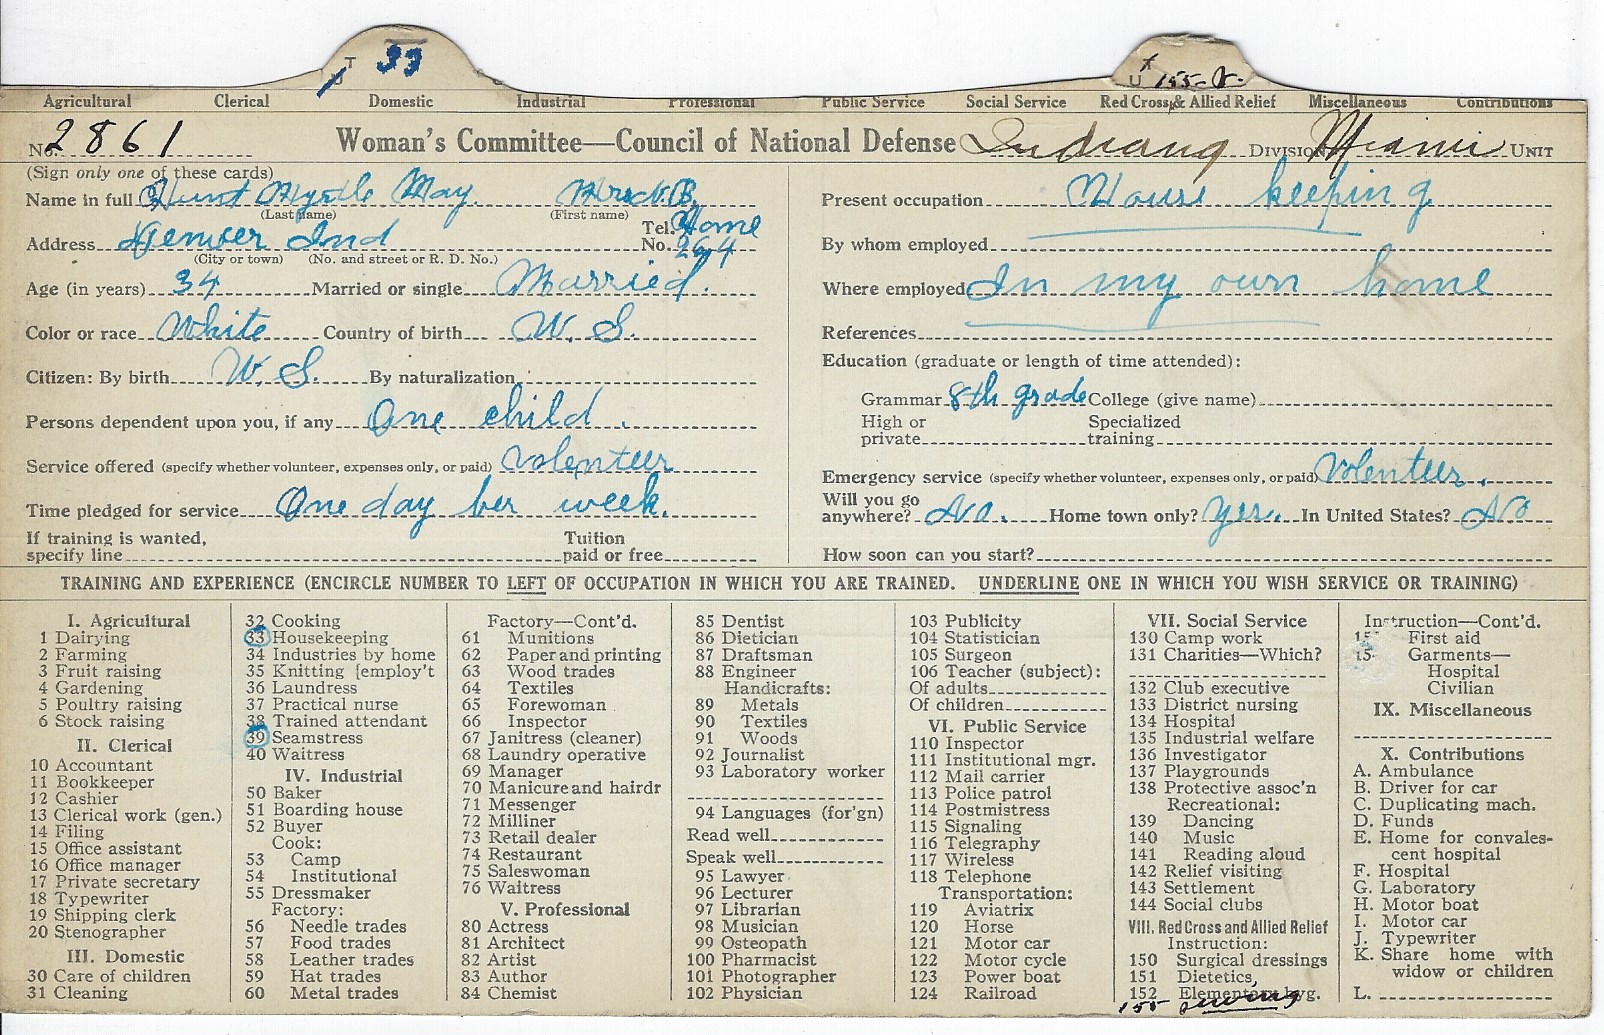 33
155-V-
Agricultural Clerical Domestic Industrial Professional Public Service Social Service Red Cross & Allied Relief Miscellaneous Contributions
No. 2861 Woman's Committee—Council of National Defense Indiana DIVISION Miami UNIT
(Sign only one of these cards)
Name in full Hunt Myrtle May. Mrs. N. B.
(Last name) (First name)
Address Denver Ind Tel. No. Home 264
(City or town) (No. and street or R. D. No.)
Age (in years) 34 Married or single Married.
Color or race White Country of birth U. S.
Citizen: By birth U. S. By naturalization
Persons dependent upon you, if any One child.
Service offered (specify whether volunteer, expenses only, or paid) Volenteer
Time pledged for service One day per week.
If training is wanted, specify line Tuition paid or free
Present occupation House keeping
By whom employed
Where employed In my own home
References
Education (graduate or length of time attended):
Grammar 8th grade College (give name)
High or private Specialized training
Emergency service (specify whether volunteer, expenses only, or paid) Volenteer.
Will you go anywhere? No. Home town only? Yes. In United States? No
How soon can you start?
TRAINING AND EXPERIENCE (ENCIRCLE NUMBER TO LEFT OF OCCUPATION IN WHICH YOU ARE TRAINED. UNDERLINE ONE IN WHICH YOU WISH SERVICE OR TRAINING)
I. Agricultural
1 Dairying
2 Farming
3 Fruit raising
4 Gardening
5 Poultry raising
6 Stock raising
II. Clerical
10 Accountant
11 Bookkeeper
12 Cashier
13 Clerical work (gen.)
14 Filing
15 Office assistant
16 Office manager
17 Private secretary
18 Typewriter
19 Shipping clerk
20 Stenographer
III. Domestic
30 Care of children
31 Cleaning
32 Cooking
33 Housekeeping
34 Industries by home
35 Knitting [employ't
36 Laundress
37 Practical nurse
38 Trained attendant
39 Seamstress
40 Waitress
IV. Industrial
50 Baker
51 Boarding house
52 Buyer
Cook:
53 Camp
54 Institutional
55 Dressmaker
Factory:
56 Needle trades
57 Food trades
58 Leather trades
59 Hat trades
60 Metal trades
Factory—Cont'd.
61 Munitions
62 Paper and printing
63 Wood trades
64 Textiles
65 Forewoman
66 Inspector
67 Janitress (cleaner)
68 Laundry operative
69 Manager
70 Manicure and hairdr
71 Messenger
72 Milliner
73 Retail dealer
74 Restaurant
75 Saleswoman
76 Waitress
V. Professional
80 Actress
81 Architect
82 Artist
83 Author
84 Chemist
85 Dentist
86 Dietician
87 Draftsman
88 Engineer
Handicrafts:
89 Metals
90 Textiles
91 Woods
92 Journalist
93 Laboratory worker
94 Languages (for'gn)
Read well
Speak well
95 Lawyer
96 Lecturer
97 Librarian
98 Musician
99 Osteopath
100 Pharmacist
101 Photographer
102 Physician
103 Publicity
104 Statistician
105 Surgeon
106 Teacher (subject):
Of adults
Of children
VI. Public Service
110 Inspector
111 Institutional mgr.
112 Mail carrier
113 Police patrol
114 Postmistress
115 Signaling
116 Telegraphy
117 Wireless
118 Telephone
Transportation:
119 Aviatrix
120 Horse
121 Motor car
122 Motor cycle
123 Power boat
124 Railroad
VII. Social Service
130 Camp work
131 Charities—Which?
132 Club executive
133 District nursing
134 Hospital
135 Industrial welfare
136 Investigator
137 Playgrounds
138 Protective assoc'n
Recreational:
139 Dancing
140 Music
141 Reading aloud
142 Relief visiting
143 Settlement
144 Social clubs
VIII. Red Cross and Allied Relief
Instruction:
150 Surgical dressings
151 Dietetics,
152 Elementary hyg.
155 sewing
Instruction—Cont'd.
First aid
Garments—
Hospital
Civilian
IX. Miscellaneous
X. Contributions
A. Ambulance
B. Driver for car
C. Duplicating mach.
D. Funds
E. Home for convales-
cent hospital
F. Hospital
G. Laboratory
H. Motor boat
I. Motor car
J. Typewriter
K. Share home with
widow or children
L.